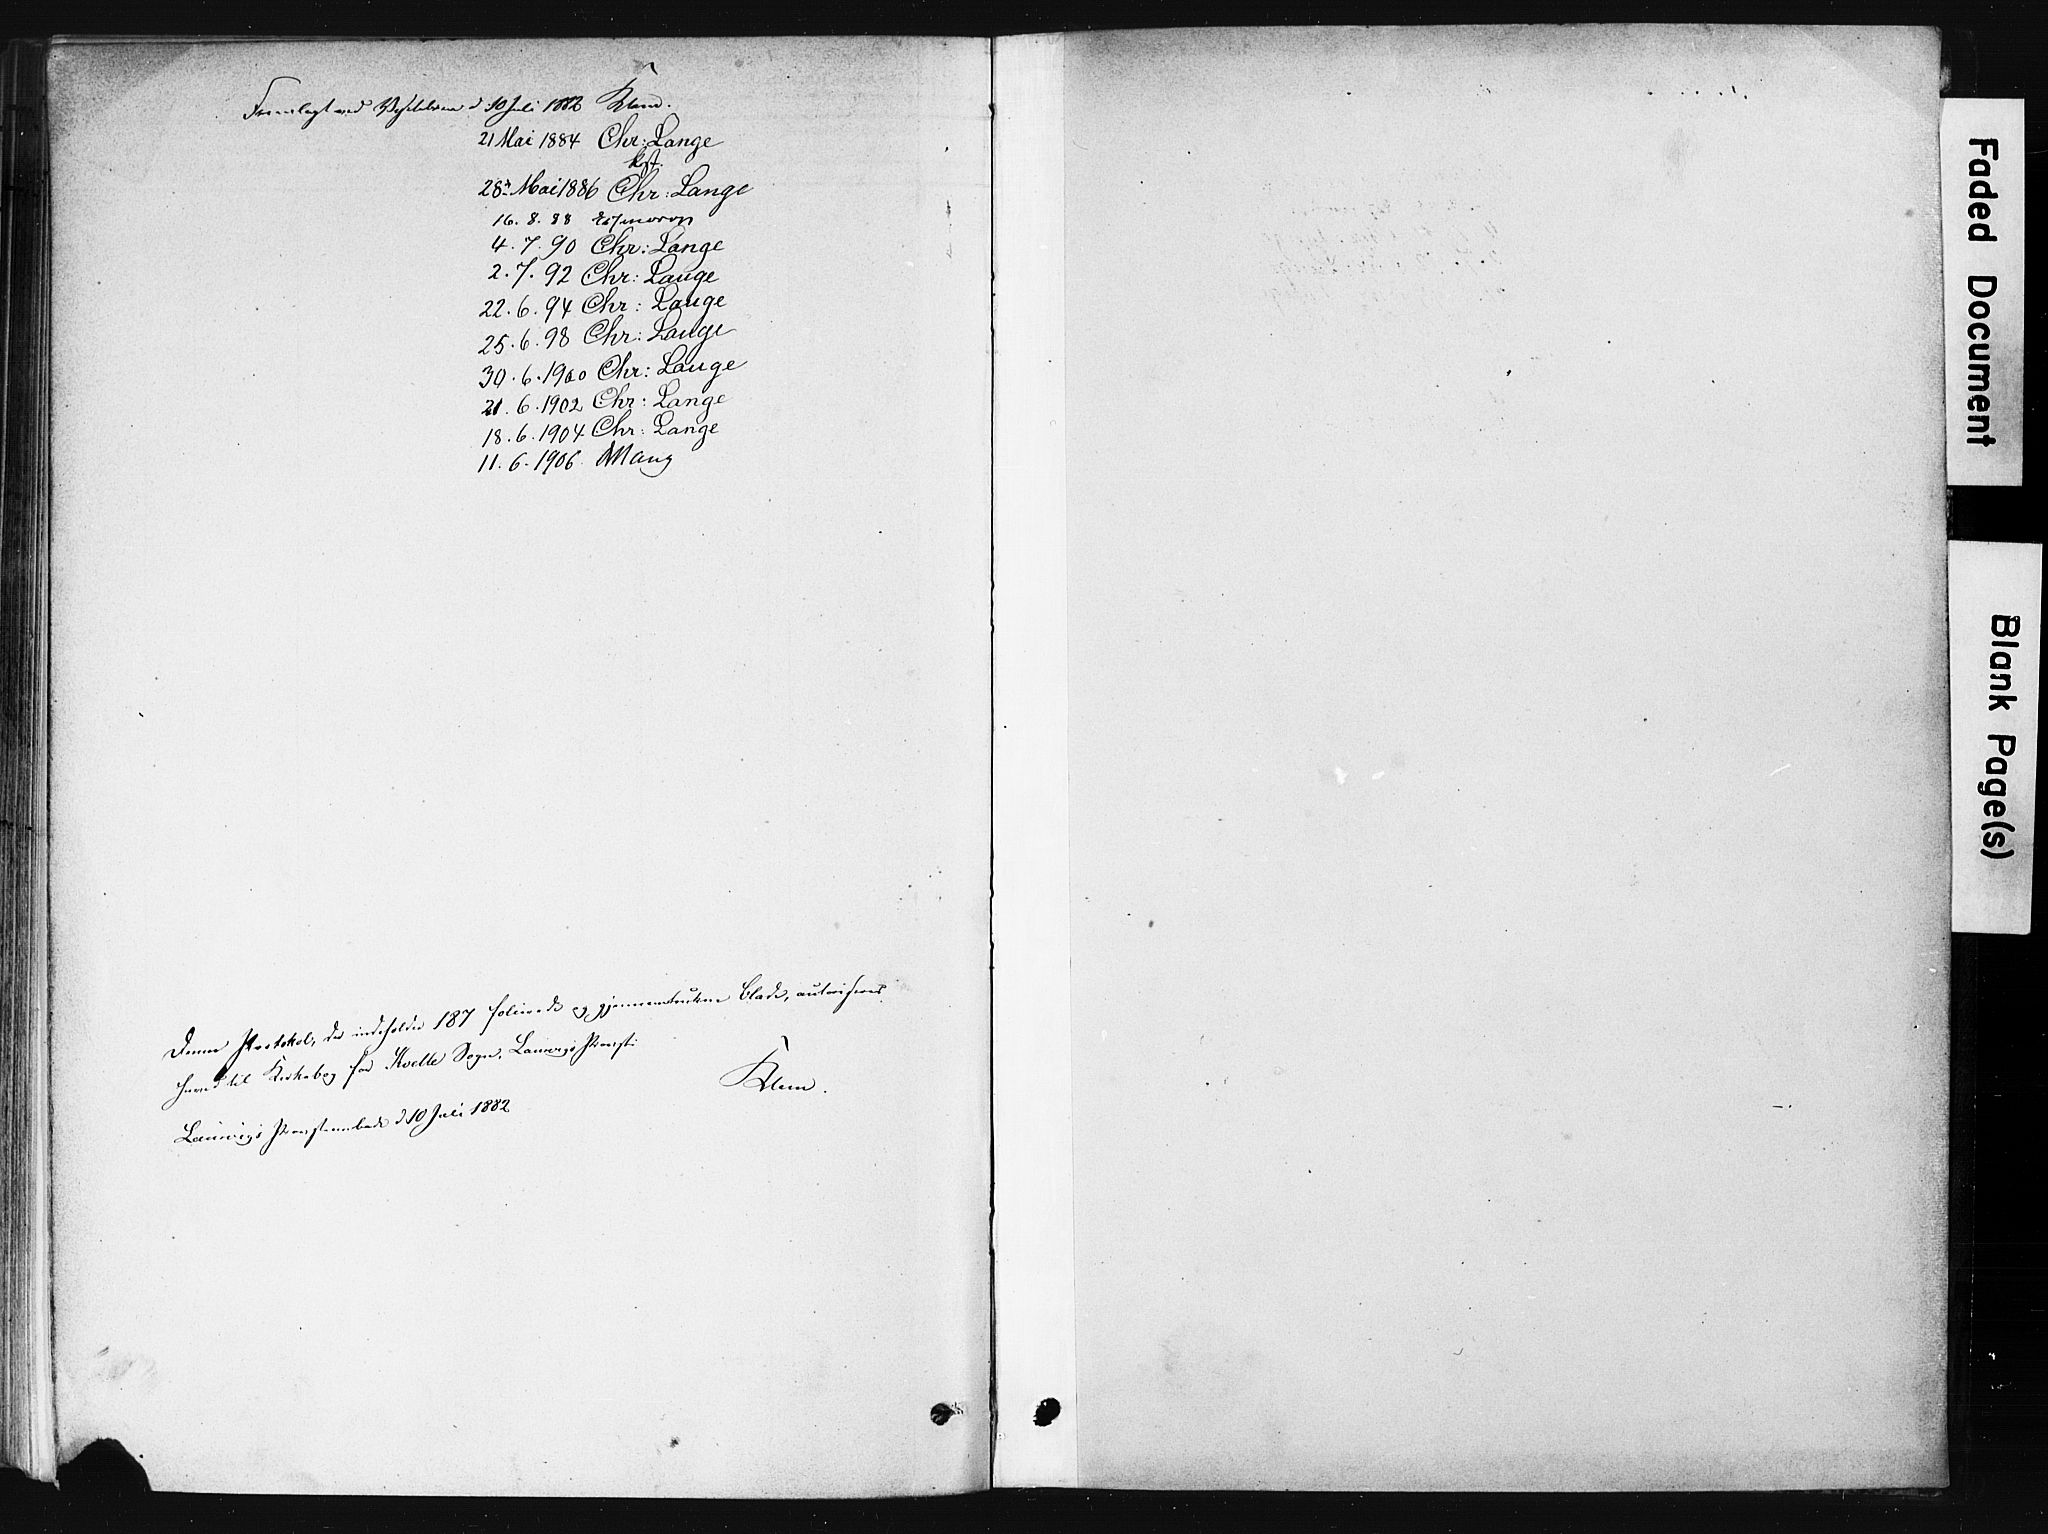 Fremlagt ved Visitatsen d 10 Juli 1882 Klem.
21 Mai 1884 Chr: Lange
kst.
28de Mai 1886 Chr: Lange
16. 8. 88
4. 7. 90 Chr: Lange
2. 7. 92 Chr: Lange
22. 6. 94 Chr: Lange
25. 6. 98 Chr: Lange
30. 6. 1900 Chr: Lange
21. 6. 1902 Chr: Lange
18. 6. 1904 Chr: Lange
11. 6. 1906.
Denne Protokol, der indeholder 187 folierede og gjennemtrukne Blade, autoriseres
herved til Kirkebog for Kvelle Sogn, Laurvigs Provsti
Klem.
Laurvigs Provstembede d 10 Juli 1882
Faded Document
Blank Page(s)